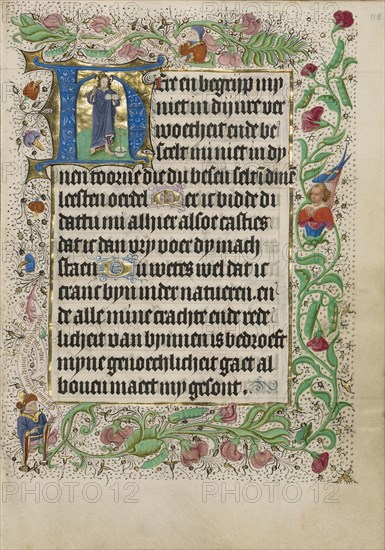 Here en begrijp my
niet in dijnre ver
woetheit ende be
scelt mi niet in dy
nen toorne die du besen selt in dinen
lesten oerdel Heer ic bidde di
dattu mi alhier alsoe casties
dat ic dan vry voer dy mach
staen Du weets wel dat ic
cranc byn in der natueren en
de alle mine crachte ende rede
licheit van bynnen is bedroeft
myne genoechlicheit gaet al
bouen maect my gesont.
PHOTO 12